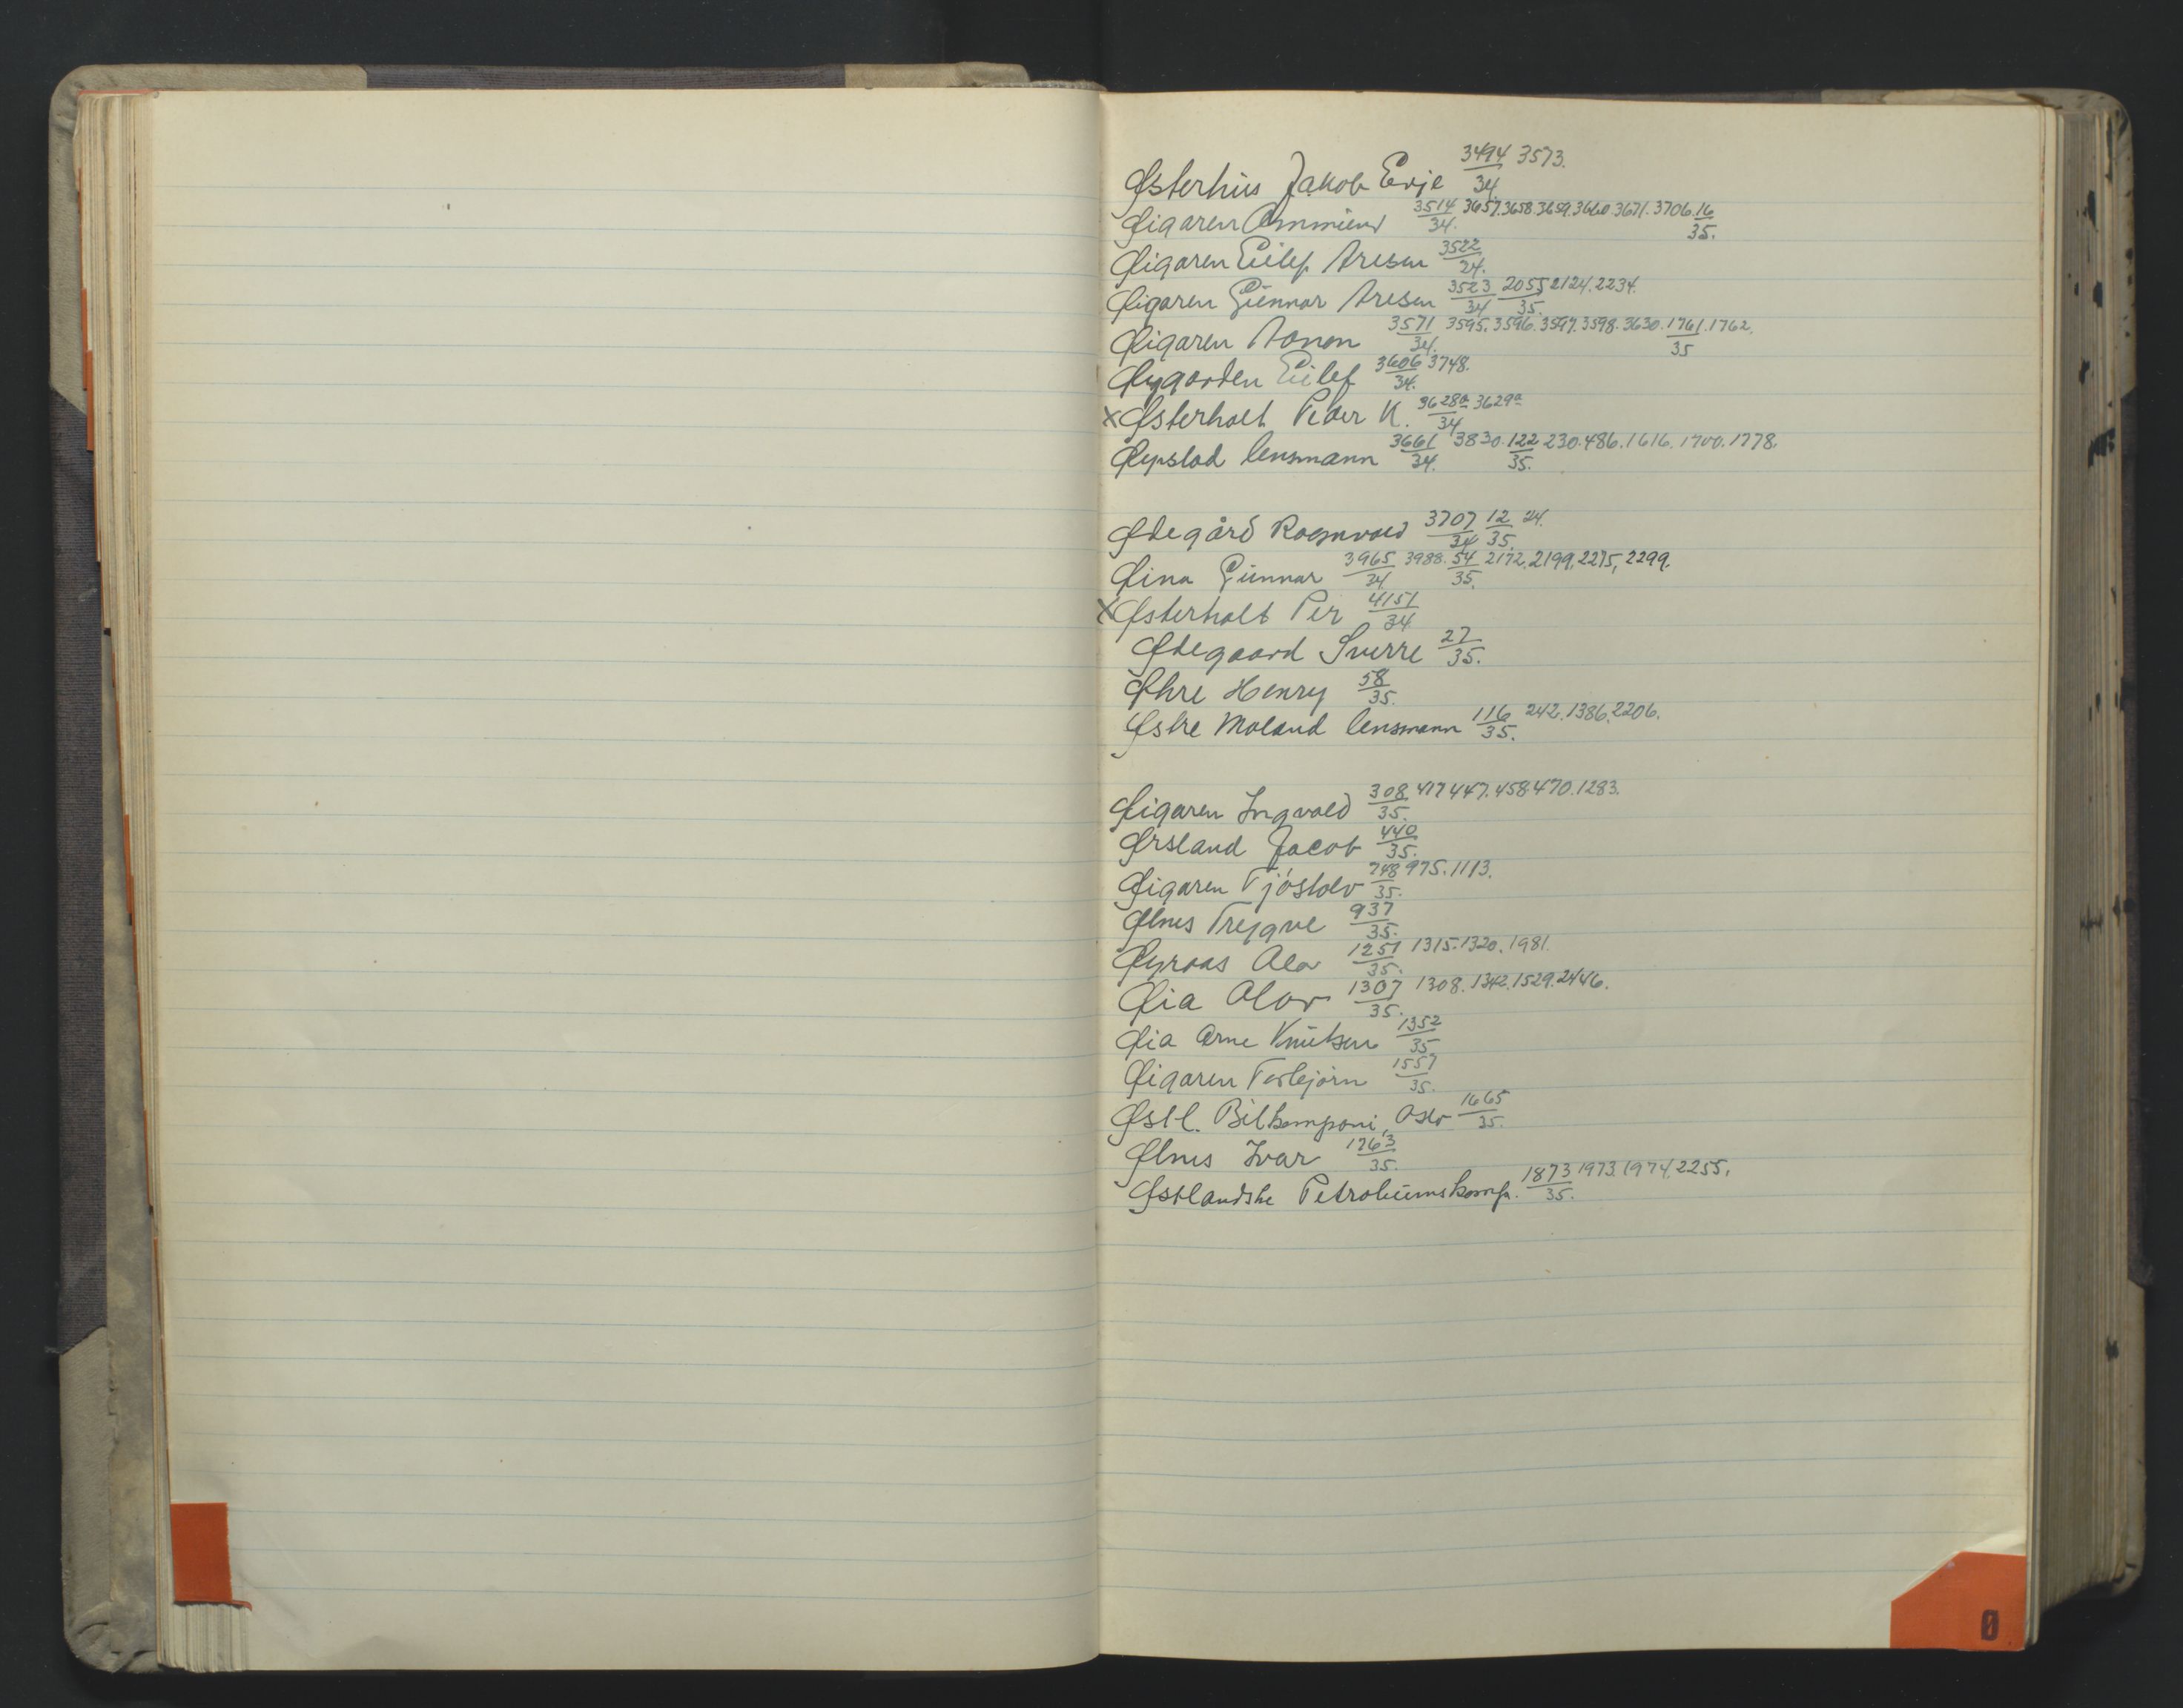 Østerhus Jakob Evje 3494/34 3573.
Øigaren Ommund 3514/34. 3657. 3658. 3659. 3660. 3671. 3706. 16/35.
Øigaren Eilef Aresen 3522/24.
Øigaren Gunnar Aresen 3523/34 2055/35. 2124. 2234.
Øigaren Aanon 3571/34. 3595. 3596. 3597. 3598. 3630. 1761/35. 1762.
Øygarden Eilef 3606/34. 3748.
x Østerholt Peder K. 3628a/34 3629a
Øyslad lensmann 3661/34. 3830. 122/35. 230. 486. 1616. 1700. 1778.
Ødegård Ragnvald 3707/34 12/35. 24.
Øina Gunnar 3965/34 3988. 54/35. 2172. 2199. 2275, 2299.
x Østerholt Per 4151/34
Ødegaard Sverre 27/35.
Øhre Henry 58/35.
Østre Moland lensmann 116/35. 242. 1386. 2206.
Øigaren Ingvald 308/35. 417 447. 458 470. 1283.
Ørsland Jacob 440/35.
Øigaren Tjøstolv 748/35. 975. 1113.
Ølnes Trygve 937/35.
Øyraas Olav 1251/35. 1315. 1320. 1981.
Øia Olav 1307/35. 1308. 1342. 1529. 2446.
Øia Arne Knutsen 1352/35
Øigaren Torbjørn 1557/35.
Østl. Bilkompani, Oslo 1665/35.
Ølnes Ivar 1763/35.
Østlandske Petroleumskomp. 1873/35. 1973. 1974. 2255.
Ø